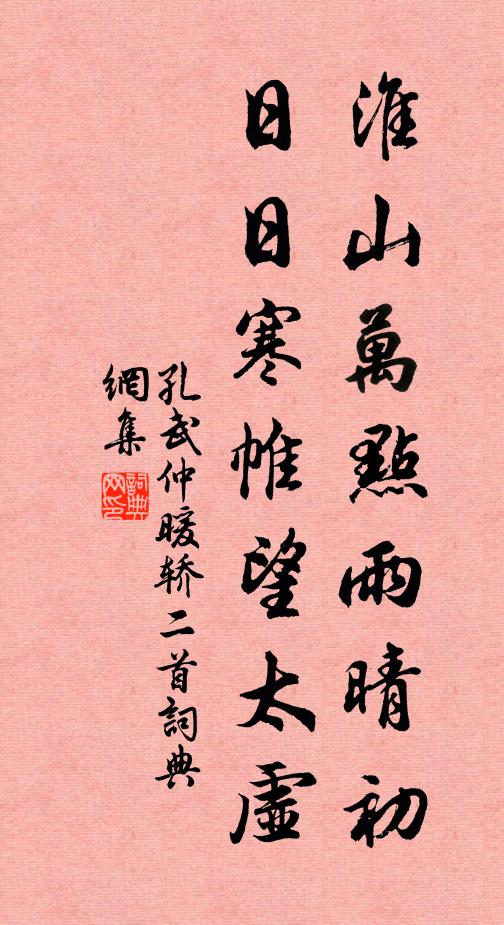 淮山萬點雨晴初
日日寒帷望太虛
孔武仲暖轿二首詞典
網集
詞典網印